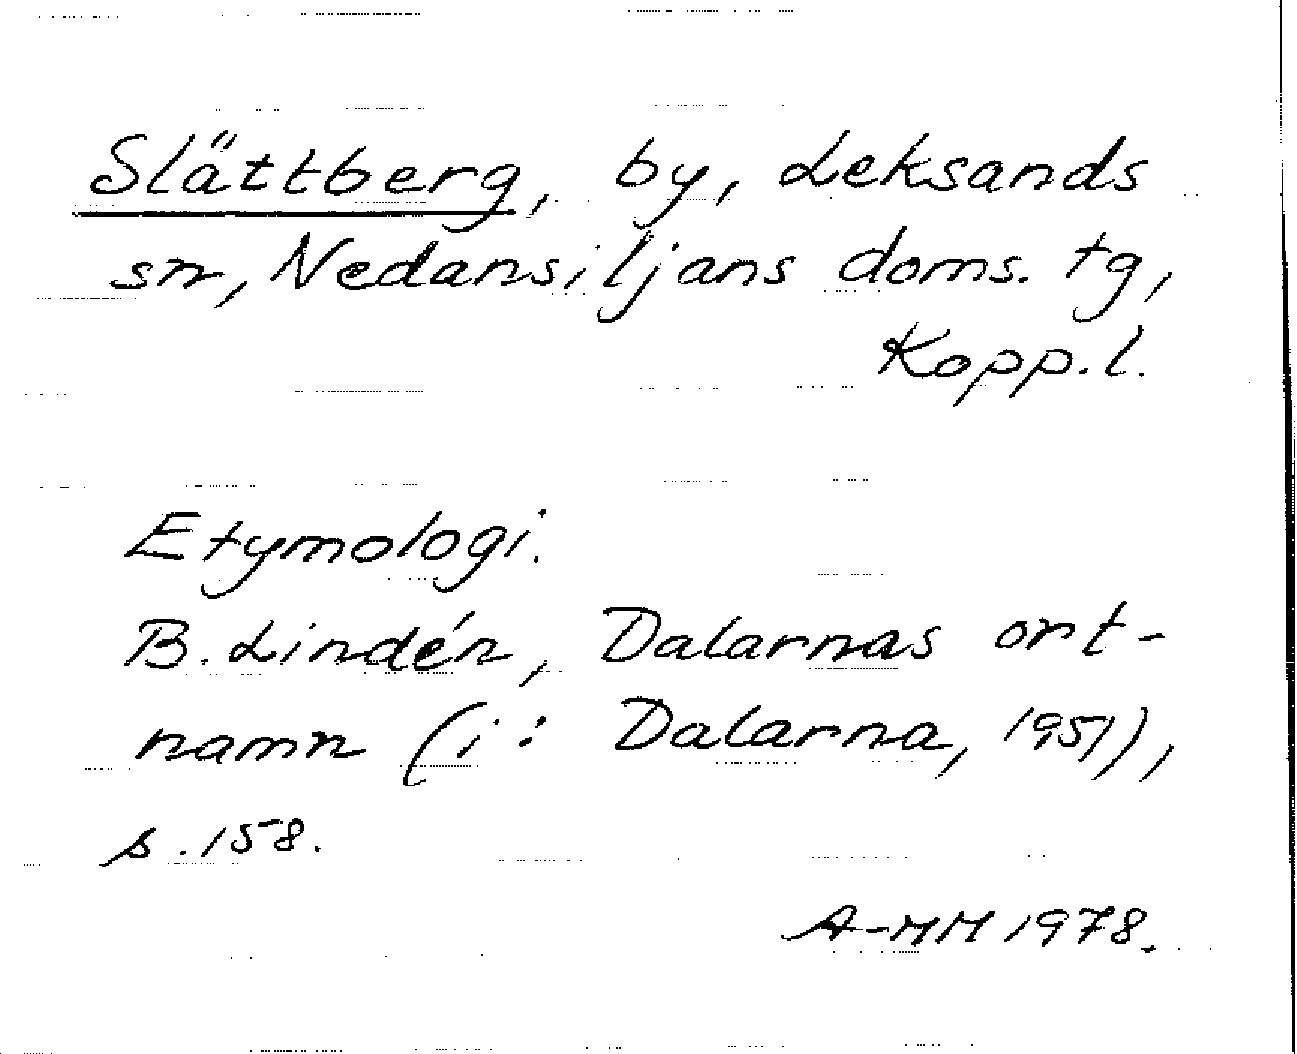 Slättberg, by, Leksands
sn, Nedansiljans doms. tg,
Kopp.l.
Etymologi.
B. Lindén, Dalarnas ort-
namn (i: Dalarna, 1951),
s. 158.
A-MM 1978.